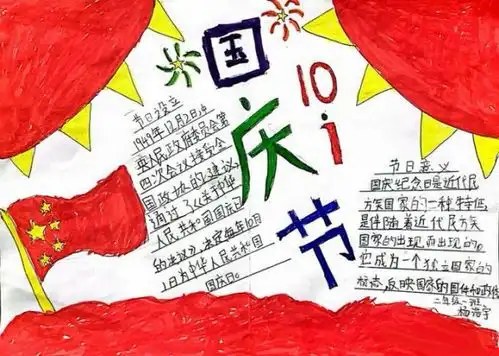 国
庆
节
10
1
节日设立
1949年12月2日,中
央人民政府委员会第
四次会议接受全
国政协的建议
通过了《关于中华
人民共和国国庆日
的决议》,决定每年10月
1日为中华人民共和国
国庆日。
节日意义
国庆纪念日是近代民
族国家的一种特征,
是伴随着近代民族
国家的出现而出现的,
它成为一个独立国家的
标志,反映国家的国体和政体
二年级一班
杨浩宇